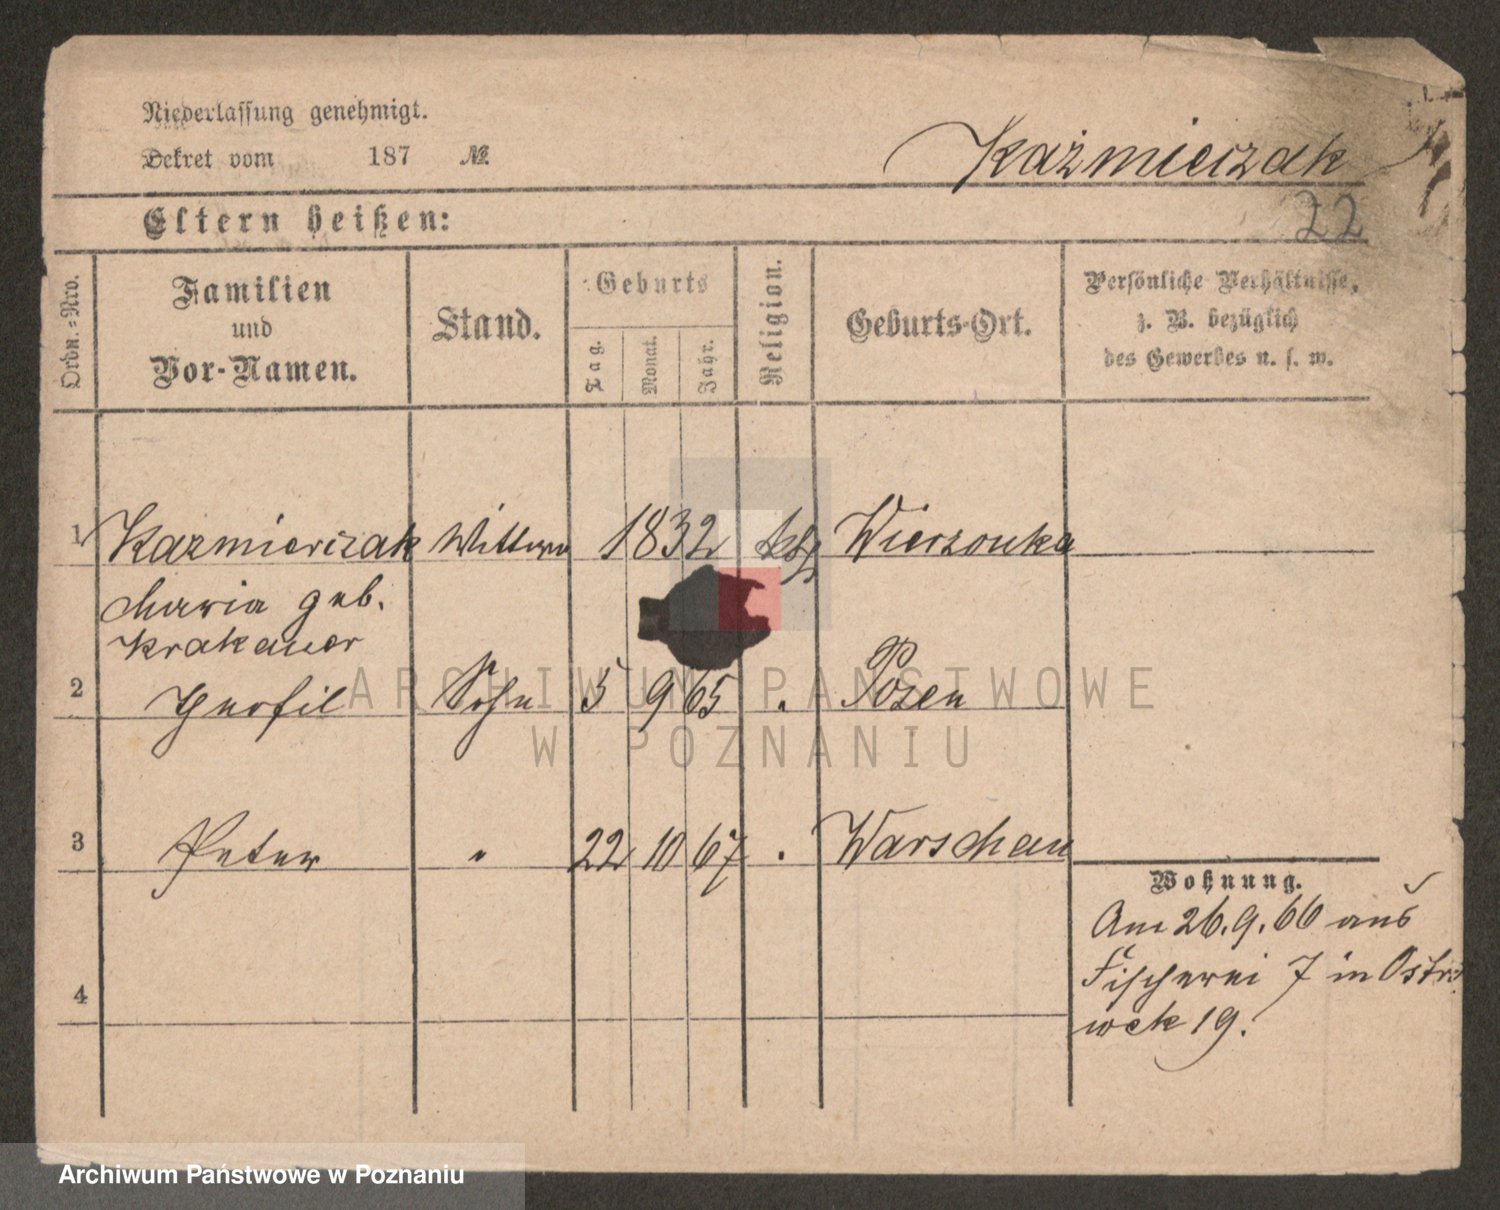 Niederlassung genehmigt.
Dekret vom 187 №
Kaźmierczak
22
Eltern heißen:
Ordn.=Nro.
Familien
und
Vor-Namen.
Stand.
Geburts
Tag.
Monat.
Jahr.
Religion.
Geburts-Ort.
Persönliche Verhältnisse,
z. B. bezüglich
des Gewerbes u. s. w.
1 Kazmierczak Wittwe 1832 kth Wierzonka
Maria geb.
Krakauer
2 Theofil Sohn 5 9 65 . Posen
3 Peter " 22 10 67 . Warschau
Wohnung.
Am 26.9.66 aus
Fischerei 7 in Ostro
wek 19.
4
ARCHIWUM PAŃSTWOWE
W POZNANIU
Archiwum Państwowe w Poznaniu